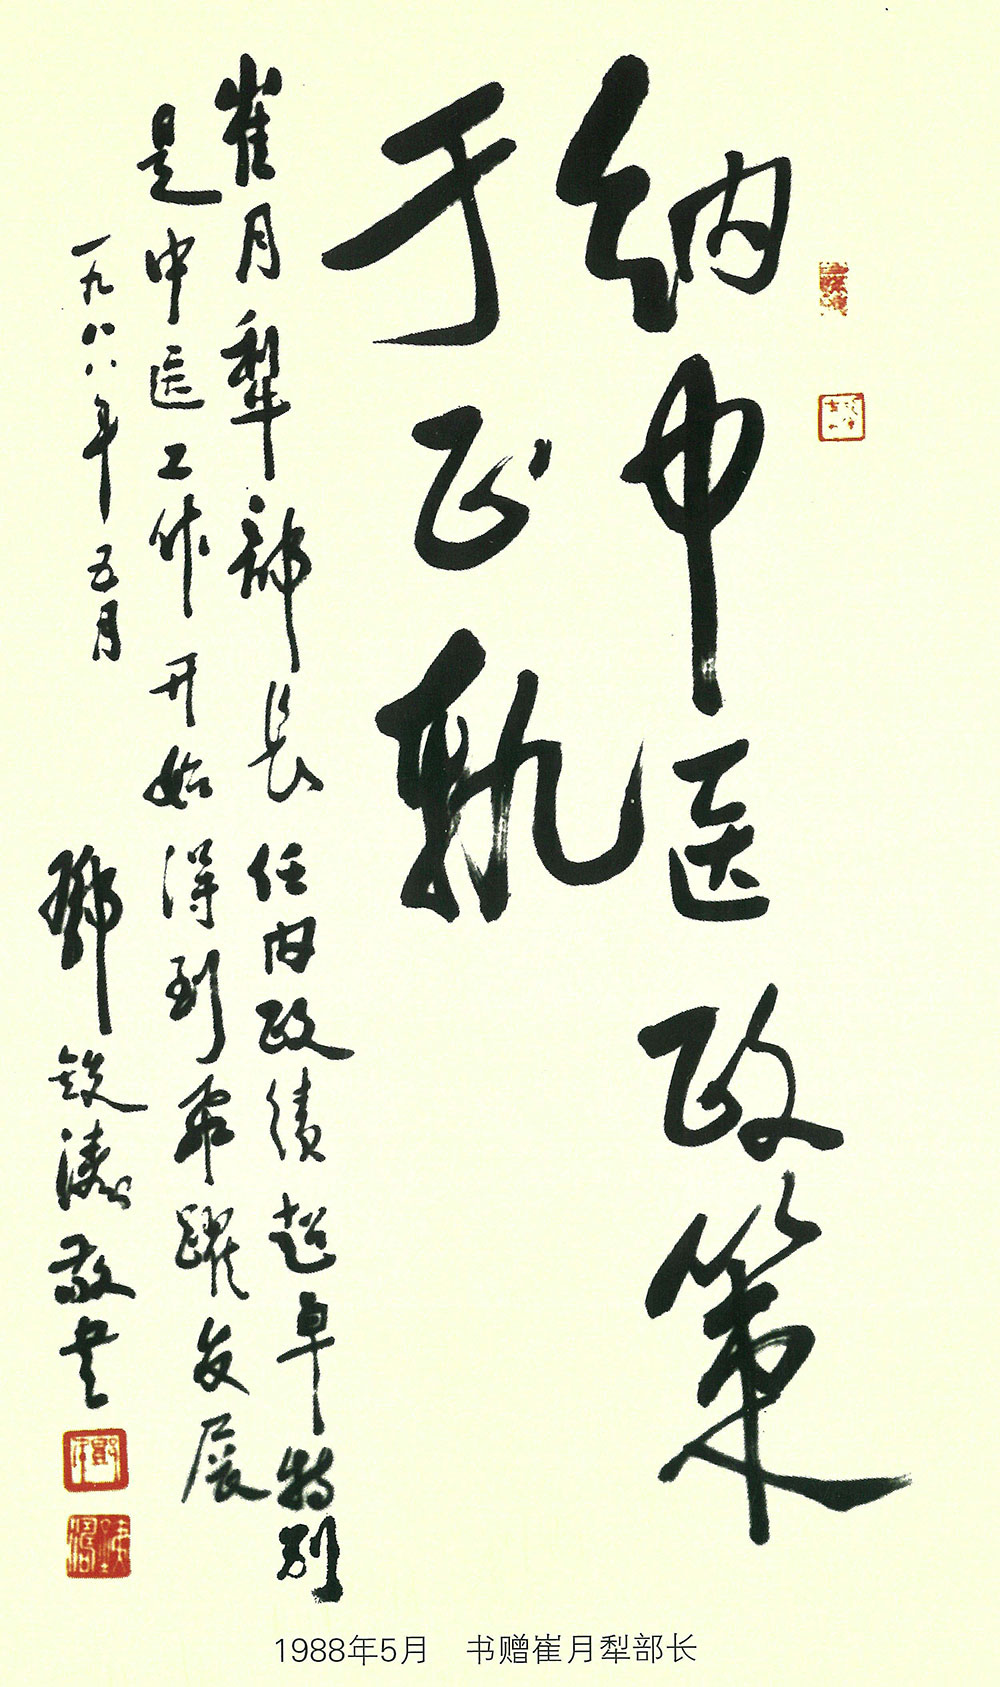 纳中医政策
于正轨
崔月犁部长任内政绩超卓特别
是中医工作开始得到飞跃发展
一九八八年五月
邓铁涛敬书
1988年5月 书赠崔月犁部长